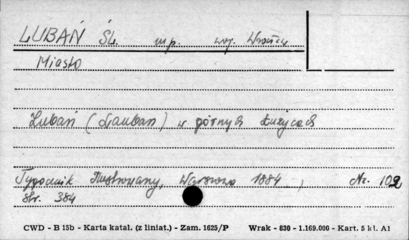 LUBAŃ Śl. m.p. woj. Wrocław
Miasto
Lubań (Lauban) w górnych Łużycach
Tygodnik Ilustrowany, Warszawa 1884, Nr. 102
Str. 384
CWD - B 15b - Karta katal. (z liniat.) - Zam. 1625/P Wrak - 830 - 1.169.000 - Kart. 5 kl. A1